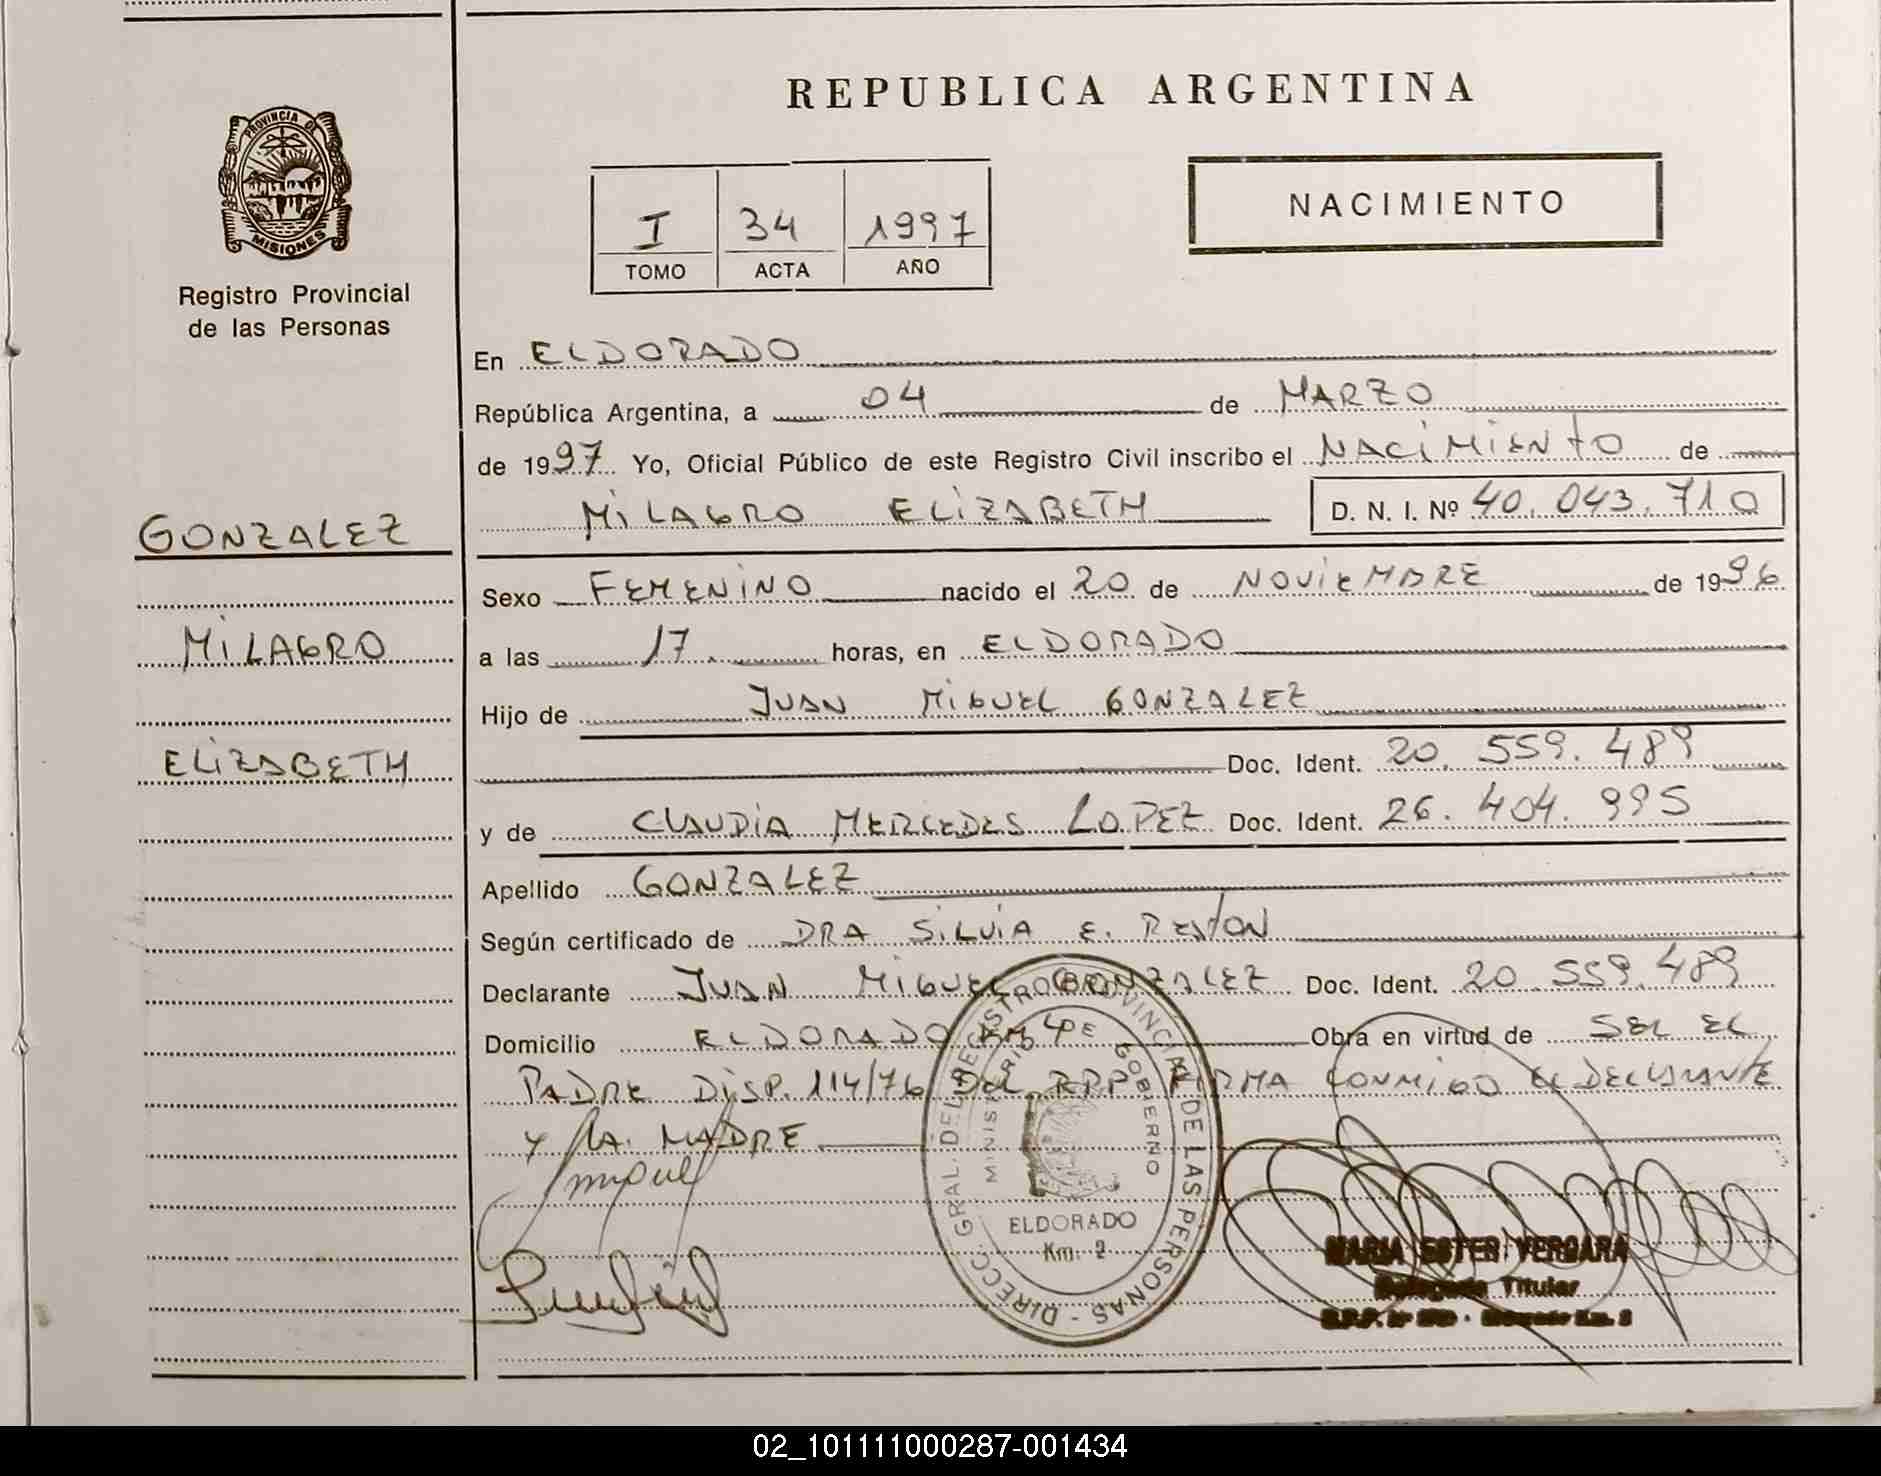 REPUBLICA ARGENTINA
PROVINCIA DE
MISIONES
Registro Provincial
de las Personas
I 34 1997
TOMO ACTA AÑO
NACIMIENTO
En ELDORADO
República Argentina, a 04 de MARZO
de 1997 Yo, Oficial Público de este Registro Civil inscribo el NACIMIENTO de
MILAGRO ELIZABETH D. N. I. Nº 40.043.710
GONZALEZ
MILAGRO
ELIZABETH
Sexo FEMENINO nacido el 20 de NOVIEMBRE de 1996
a las 17 horas, en ELDORADO
Hijo de JUAN MIGUEL GONZALEZ
Doc. Ident. 20.559.489
y de CLAUDIA MERCEDES LOPEZ Doc. Ident. 26.404.995
Apellido GONZALEZ
Según certificado de DRA SILVIA E. RESTON
Declarante JUAN MIGUEL GONZALEZ Doc. Ident. 20.559.489
Domicilio ELDORADO KM 4 Obra en virtud de SER EL
PADRE DISP. 114/76 DEL RPP FIRMA CONMIGO EL DECLARANTE
Y LA MADRE
DIRECC. GRAL. DEL REGISTRO PROVINCIAL DE LAS PERSONAS -
MINISTERIO DE GOBIERNO
ELDORADO
Km. 2
MARIA ESTER VERGARA
Delegada Titular
02_101111000287-001434